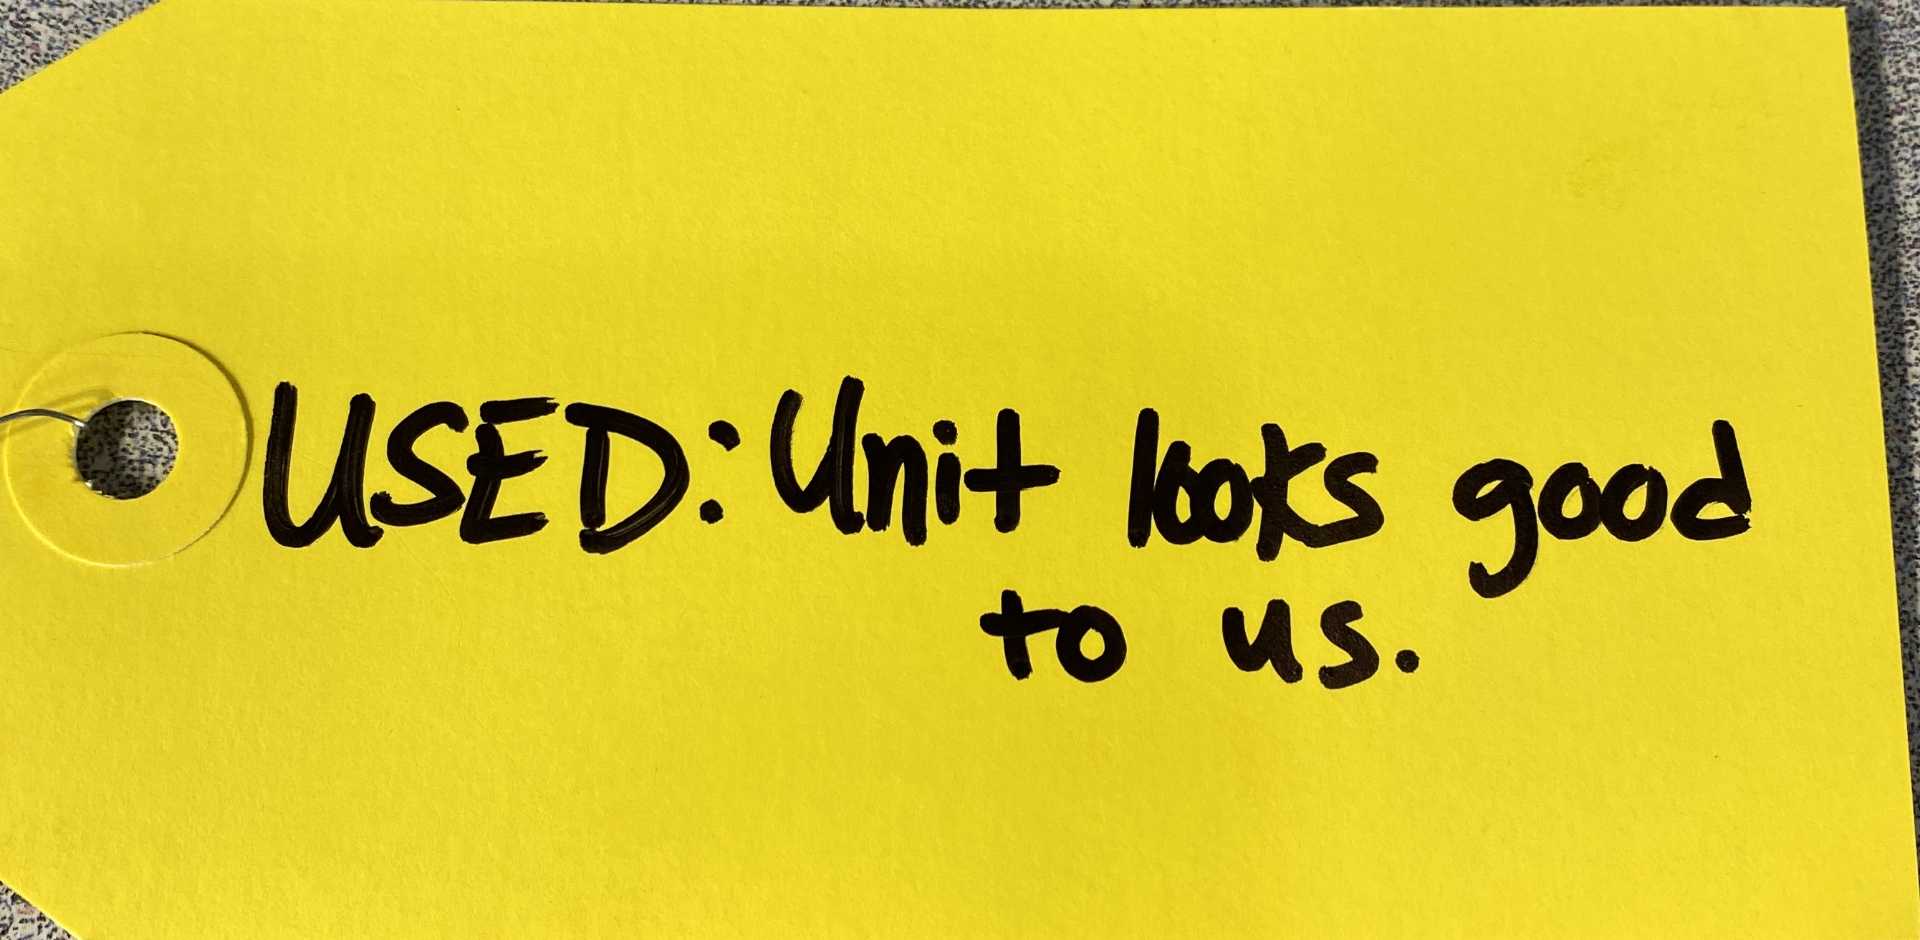 USED: Unit looks good
to us.